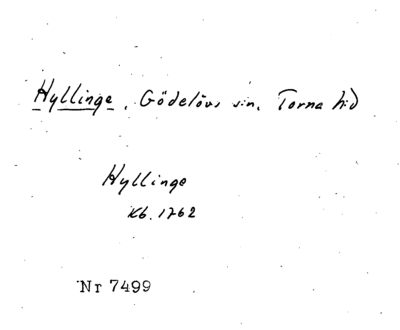 Hyllinge, Gödelövs sn, Torna hd
Hyllinge
Kb. 1762
Nr 7499